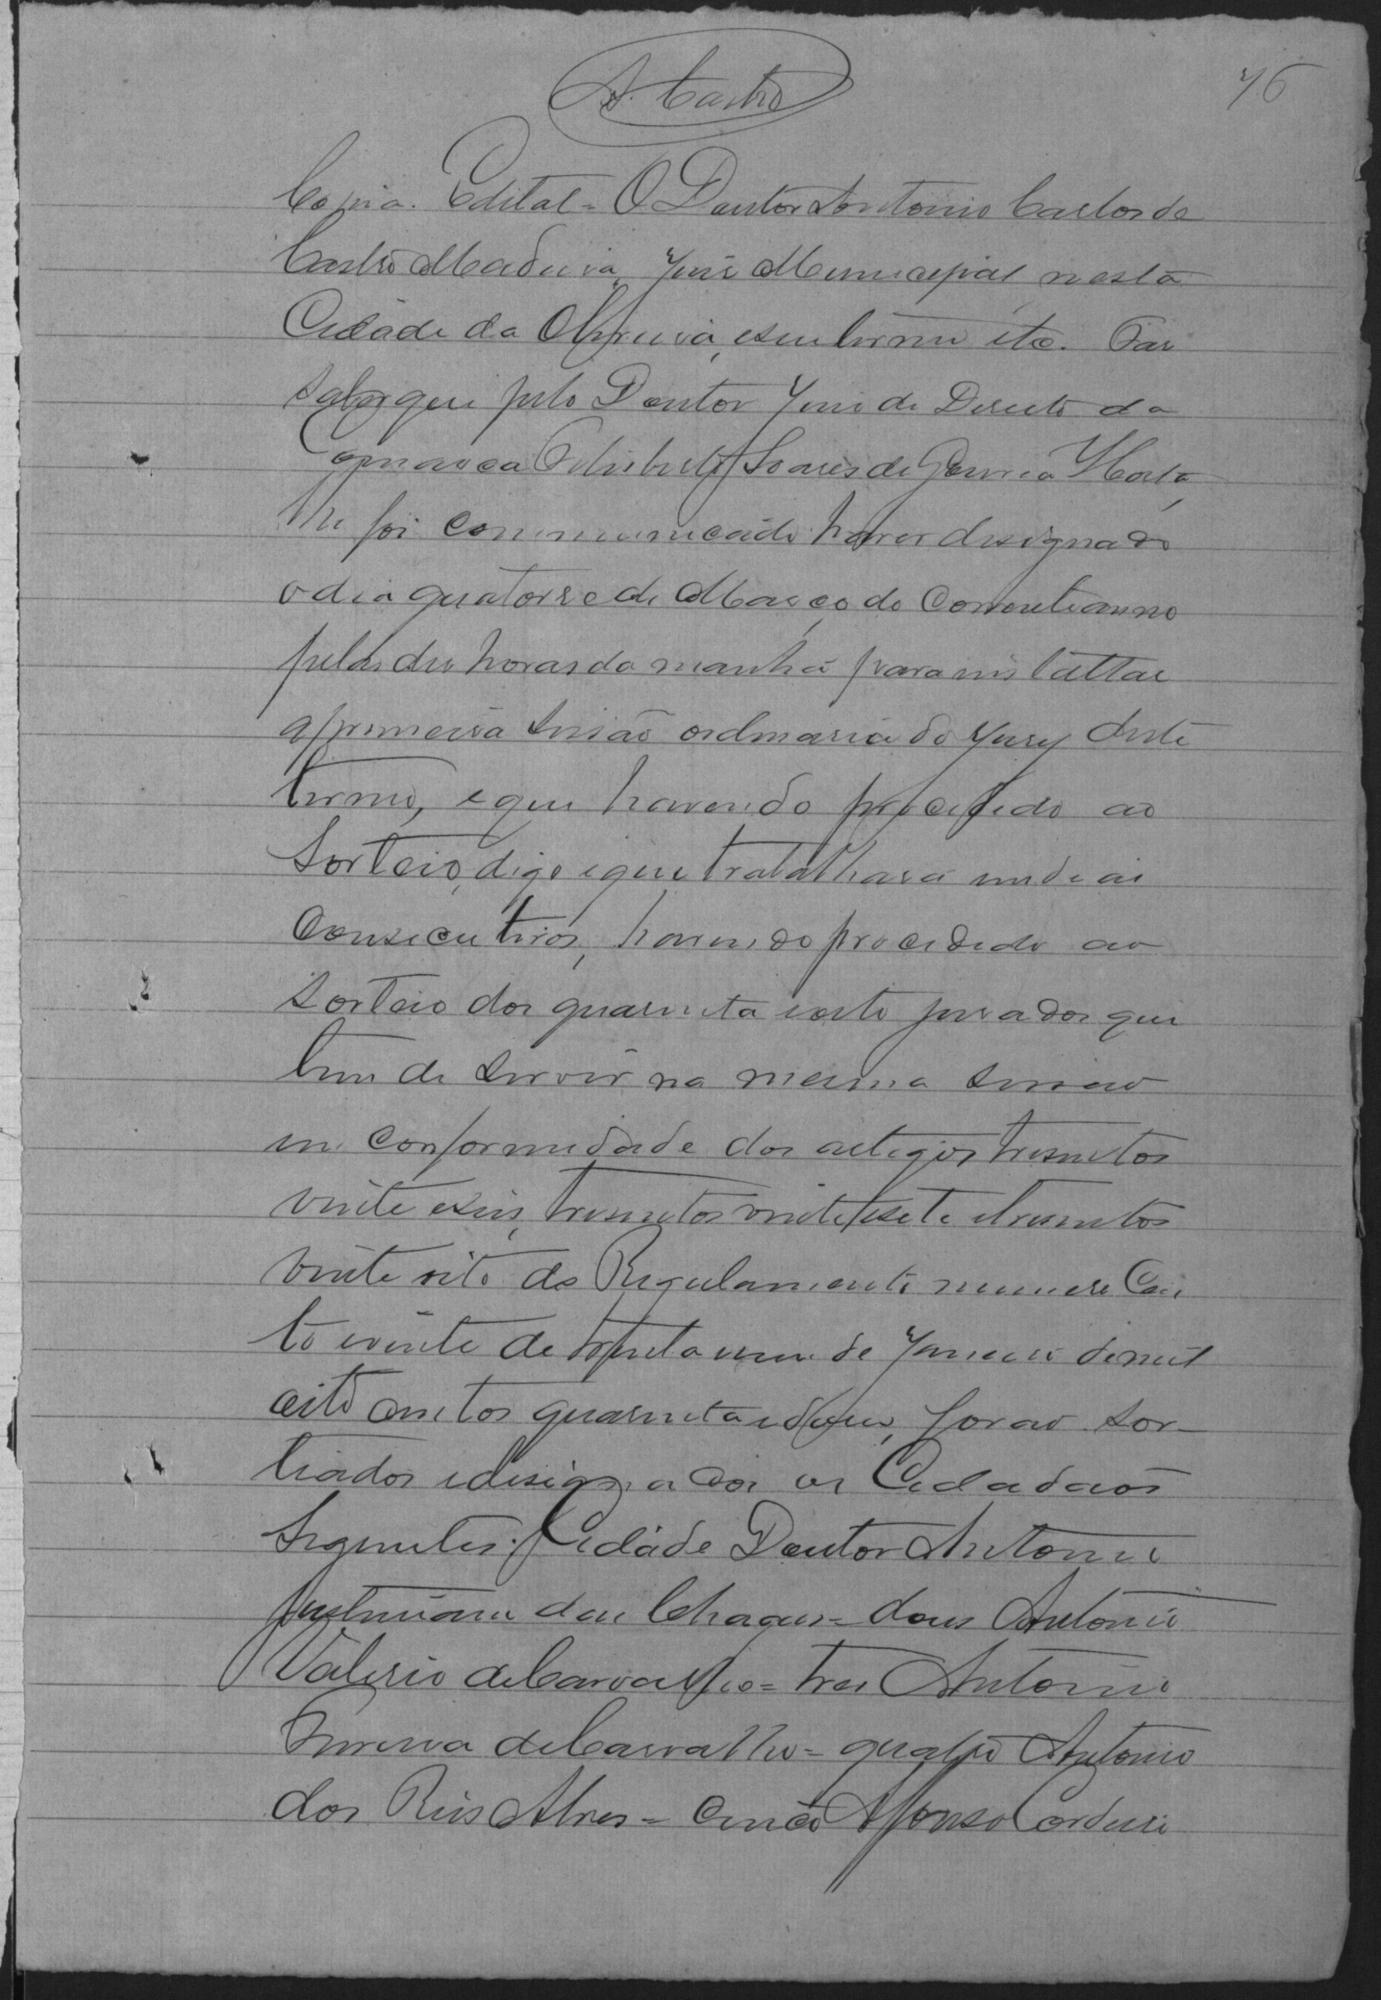 A. Castro
76
Copia. Edital = O Doutor Antonio Carlos de
Castro Madeira, Juis Municipal nesta
Cidade da Oliveira, e seu termo etc. Fas
saber que pelo Doutor Juis de Direito da
Comarca Soares de Gouvea Horta,
lhe foi communicado haver designado
o dia quatorse de Março do corrente anno
pelas des horas da manhã para installar
a primeira sessão ordinaria do Jury deste
termo, e que havendo procedido ao
sorteio, digo e que trabalhará em dias
consecutivos, havendo procedido ao
sorteio dos quarenta e oito jurados que
tem de servir na mesma sessão
em conformidade dos artigos tresentos
vinte e seis, tresentos vinte e sete e tresentos
vinte oito do Regulamento numero Cen
to e vinte de trinta e um de Janeiro de mil
oito centos quarenta e dous, forão sor-
teados e designados os Cidadãos
seguintes: Cidade Doutor Antonio
Justiniano das Chagas = dous Antonio
Valerio de Carvalho = tres Antonio
Ferreira de Carvalho = quatro Antonio
dos Reis Alves = cinco Affonso Cordeiro